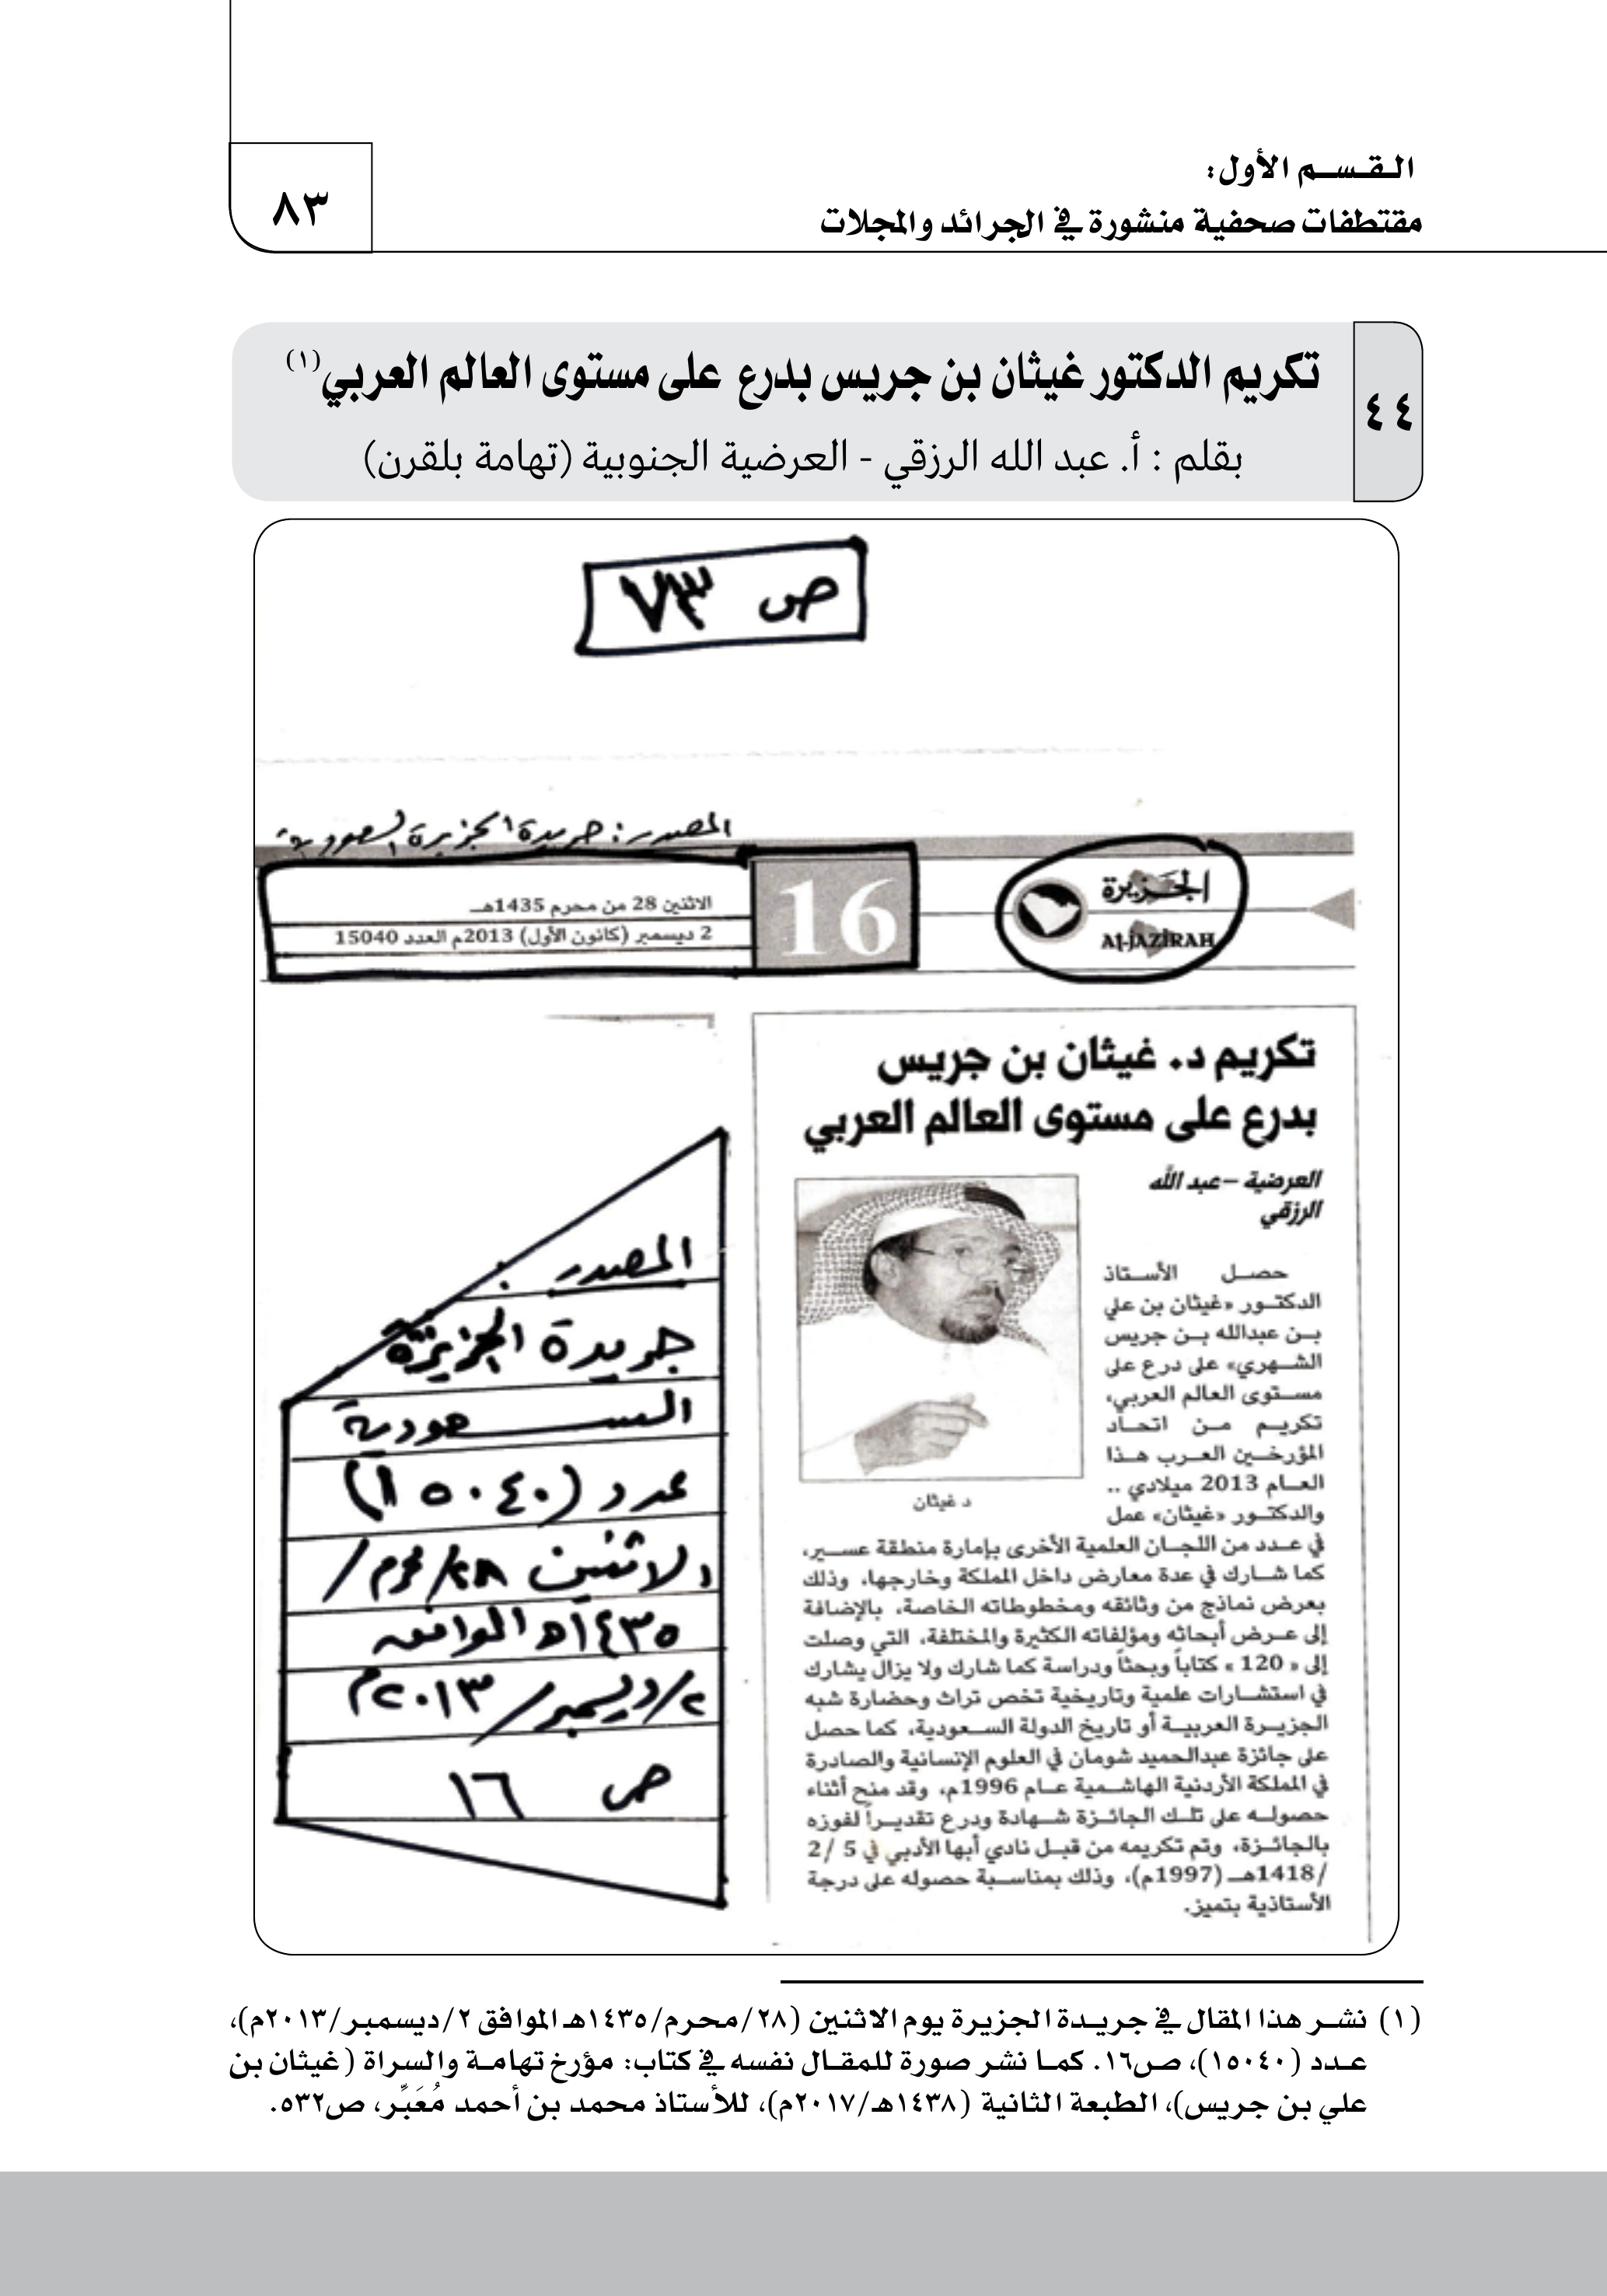 القسم الأول:
مقتطفات صحفية منشورة في الجرائد والمجلات
٨٣
٤٤
تكريم الدكتور غيثان بن جريس بدرع على مستوى العالم العربي(١)
بقلم : أ. عبد الله الرزقي - العرضية الجنوبية (تهامة بلقرن)
ص ٧٣
المصدر: جريدة الجزيرة السعودية
الجزيرة
Al-JAZIRAH
16
الاثنين 28 من محرم 1435هـ
2 ديسمبر (كانون الأول) 2013م العدد 15040
تكريم د. غيثان بن جريس
بدرع على مستوى العالم العربي
العرضية – عبد الله
الرزقي
حصل الأستاذ
الدكتور «غيثان بن علي
بن عبدالله بن جريس
الشهري» على درع على
مستوى العالم العربي،
تكريم من اتحاد
المؤرخين العرب هذا
العام 2013 ميلادي ..
والدكتور «غيثان» عمل
د غيثان
في عدد من اللجان العلمية الأخرى بإمارة منطقة عسير،
كما شارك في عدة معارض داخل المملكة وخارجها، وذلك
بعرض نماذج من وثائقه ومخطوطاته الخاصة، بالإضافة
إلى عرض أبحاثه ومؤلفاته الكثيرة والمختلفة، التي وصلت
إلى « 120 » كتاباً وبحثاً ودراسة كما شارك ولا يزال يشارك
في استشارات علمية وتاريخية تخص تراث وحضارة شبه
الجزيرة العربية أو تاريخ الدولة السعودية، كما حصل
على جائزة عبدالحميد شومان في العلوم الإنسانية والصادرة
في المملكة الأردنية الهاشمية عام 1996م، وقد منح أثناء
حصوله على تلك الجائزة شهادة ودرع تقديراً لفوزه
بالجائزة، وتم تكريمه من قبل نادي أبها الأدبي في 5 /2
/1418هـ (1997م)، وذلك بمناسبة حصوله على درجة
الأستاذية بتميز.
المصدر :
جريدة الجزيرة
السعودية
عدد (١٥٠٤٠)
الاثنين ٢٨/محرم/
١٤٣٥هـ الموافق
٢/ديسمبر/٢٠١٣م
ص ١٦
(١) نشر هذا المقال في جريدة الجزيرة يوم الاثنين (٢٨/محرم/١٤٣٥هـ الموافق ٢/ديسمبر/٢٠١٣م)،
عدد (١٥٠٤٠)، ص١٦. كما نشر صورة للمقال نفسه في كتاب: مؤرخ تهامة والسراة (غيثان بن
علي بن جريس)، الطبعة الثانية (١٤٣٨هـ/٢٠١٧م)، للأستاذ محمد بن أحمد مُعَبِّر، ص٥٣٢.